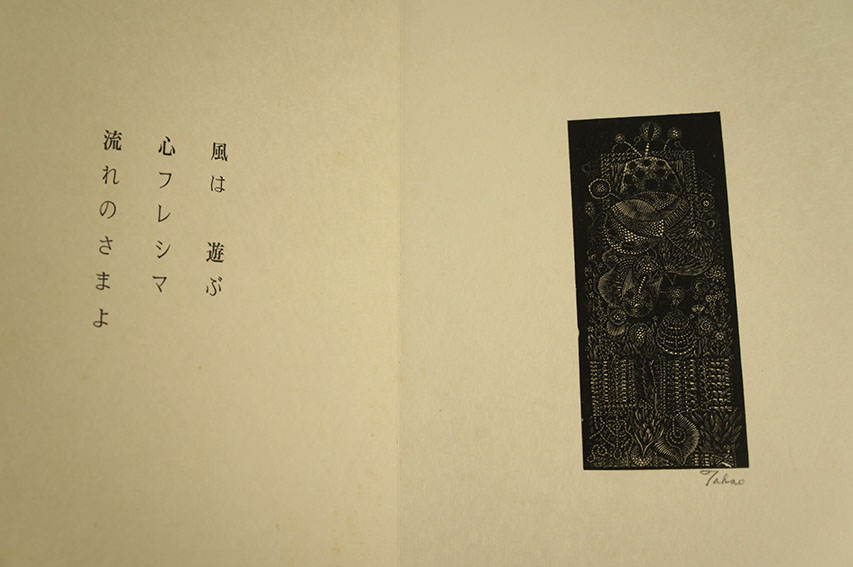 風は　遊ぶ
心フレシマ
流れのさまよ
Takao